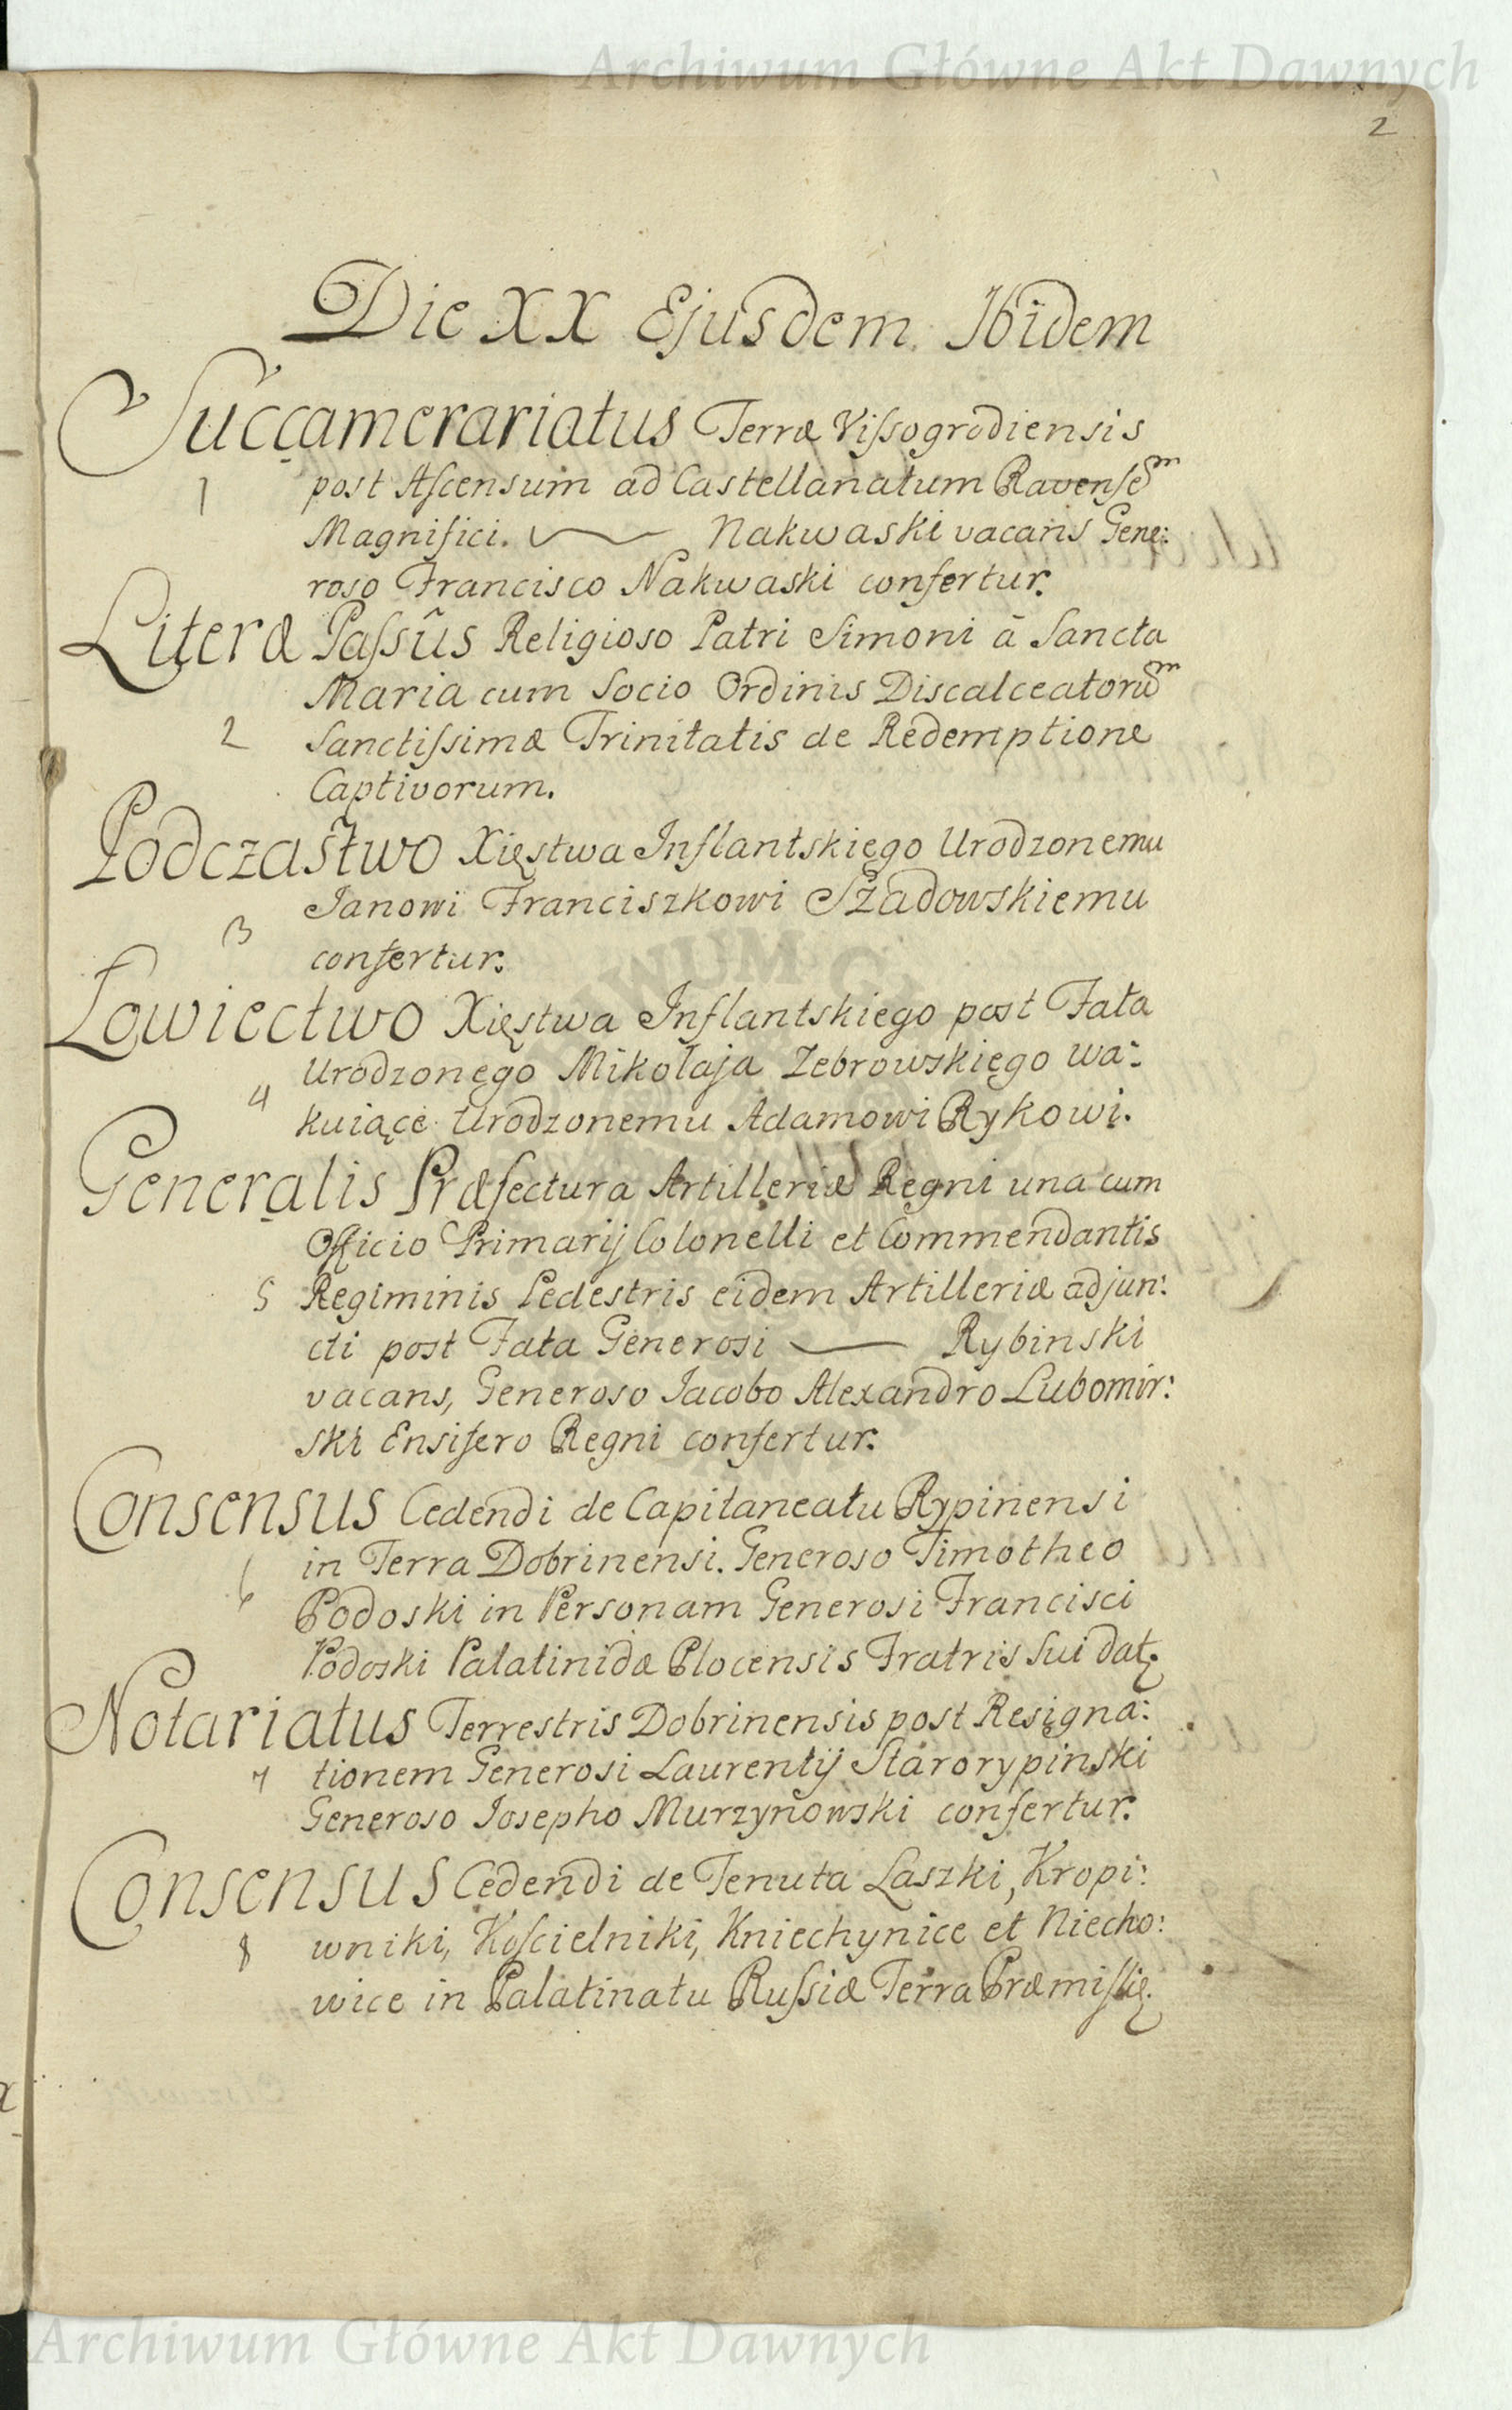 Archiwum Główne Akt Dawnych
2
Die XX Ejusdem Ibidem
Succamerariatus Terræ Vissogrodiensis
1 post Ascensum ad Castellanatum Ravensem
Magnifici. Nakwaski vacans Gene:
roso Francisco Nakwaski confertur.
Literæ Passûs Religioso Patri Simoni à Sancta
Maria cum Socio Ordinis Discalceatorum
2 Sanctissimæ Trinitatis de Redemptione
Captivorum.
Podczastwo Xięstwa Inflantskięgo Urodzonemu
Janowi Franciszkowi Szadowskiemu
3 confertur.
Łowiectwo Xięstwa Inflantskiego post Fata
Urodzonęgo Mikołaja Zebrowskięgo wa:
4 kuiące Urodzonemu Adamowi Rykowi.
Generalis Præfectura Artilleriæ Regni una cum
Officio Primarij Colonelli et Commendantis
5 Regiminis Pedestris eidem Artilleriæ adjun:
cti post Fata Generosi Rybinski
vacans, Generoso Jacobo Alexandro Lubomir:
ski Ensifero Regni confertur.
Consensus Cedendi de Capitaneatu Rypinensi
in Terra Dobrinensi. Generoso Timotheo
6 Podoski in Personam Generosi Francisci
Podoski Palatinidæ Plocensis Fratris Sui dat.
Notariatus Terrestris Dobrinensis post Resigna:
7 tionem Generosi Laurentij Starorypinski
Generoso Josepho Murzynowski confertur.
Consensus Cedendi de Tenuta Laszki, Kropi:
8 wniki, Koscielniki, Kniechynice et Niecho:
wice in Palatinatu Russiæ Terra Præmislię.
Archiwum Główne Akt Dawnych